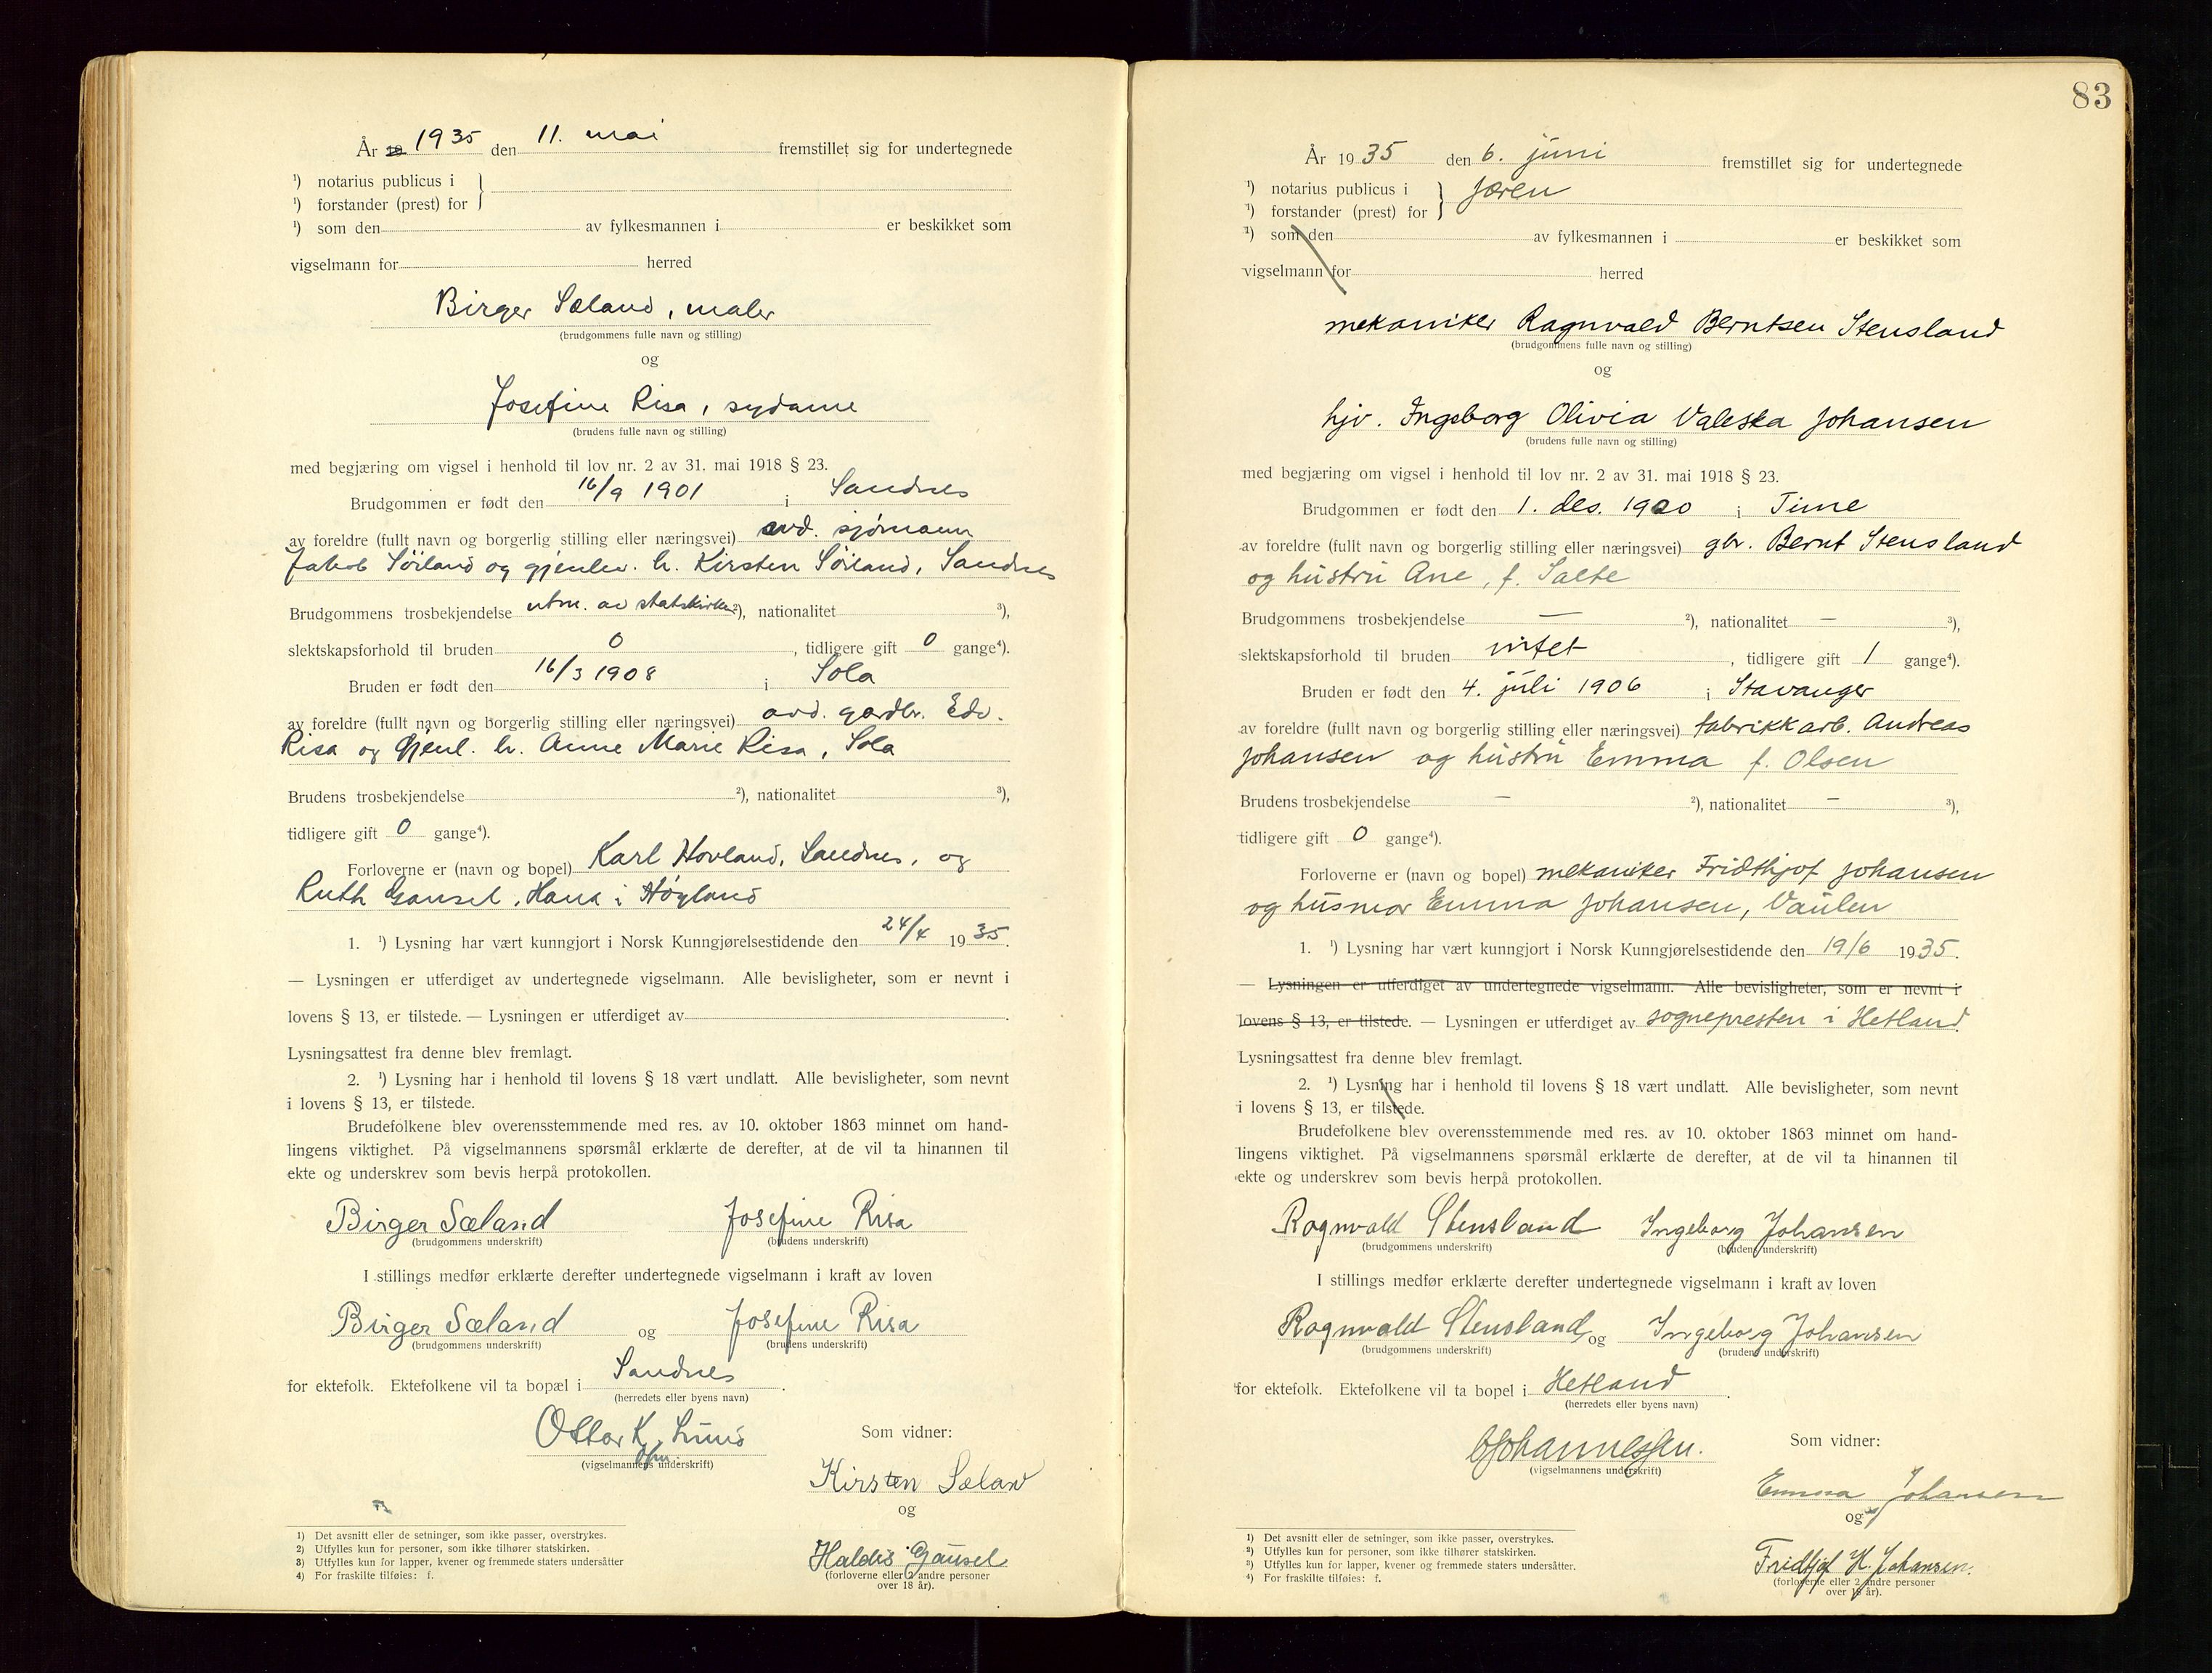 År 19 1935 den 11. mai fremstillet sig for undertegnede
¹) notarius publicus i }
¹) forstander (prest) for
¹) som den av fylkesmannen i er beskikket som
vigselmann for herred
Birger Sæland, maler
(brudgommens fulle navn og stilling)
og
Josefine Risa, sydame
(brudens fulle navn og stilling)
med begjæring om vigsel i henhold til lov nr. 2 av 31. mai 1918 § 23.
Brudgommen er født den 16/9 1901 i Sandnes
av foreldre (fullt navn og borgerlig stilling eller næringsvei) avd. sjømann
Jakob Söiland og gjenlev. h. Kirsten Söiland, Sandnes
Brudgommens trosbekjendelse utm. av statskirken ²), nationalitet ³),
slektskapsforhold til bruden 0, tidligere gift 0 gange⁴).
Bruden er født den 16/3 1908 i Sola
av foreldre (fullt navn og borgerlig stilling eller næringsvei) avd. gardbr. Edv.
Risa og gjenl. h. Anne Marie Risa, Sola
Brudens trosbekjendelse ²), nationalitet ³),
tidligere gift 0 gange⁴).
Forloverne er (navn og bopel) Karl Hovland, Sandnes, og
Ruth Gausel, Hana i Høyland
1. ¹) Lysning har vært kunngjort i Norsk Kunngjørelsestidende den 24/4 1935.
— Lysningen er utferdiget av undertegnede vigselmann. Alle bevisligheter, som er nevnt i
lovens § 13, er tilstede. — Lysningen er utferdiget av .
Lysningsattest fra denne blev fremlagt.
2. ¹) Lysning har i henhold til lovens § 18 vært undlatt. Alle bevisligheter, som nevnt
i lovens § 13, er tilstede.
Brudefolkene blev overensstemmende med res. av 10. oktober 1863 minnet om hand-
lingens viktighet. På vigselmannens spørsmål erklærte de derefter, at de vil ta hinannen til
ekte og underskrev som bevis herpå protokollen.
Birger Sæland Josefine Risa
(brudgommens underskrift) (brudens underskrift)
I stillings medfør erklærte derefter undertegnede vigselmann i kraft av loven
Birger Sæland og Josefine Risa
(brudgommens underskrift) (brudens underskrift)
for ektefolk. Ektefolkene vil ta bopæl i Sandnes.
(herredets eller byens navn)
Ottar K. Lunds
(vigselmannens underskrift)
Som vidner:
Kirsten Sæland
og
Haldis Gausel
(forloverne eller 2 andre personer
over 18 år).
1) Det avsnitt eller de setninger, som ikke passer, overstrykes.
2) Utfylles kun for personer, som ikke tilhører statskirken.
3) Utfylles kun for lapper, kvener og fremmede staters undersåtter
4) For fraskilte tilføies: f.
83
År 1935 den 6. juni fremstillet sig for undertegnede
¹) notarius publicus i } Jæren
¹) forstander (prest) for
¹) som den av fylkesmannen i er beskikket som
vigselmann for herred
mekaniker Ragnvald Berntsen Stensland
(brudgommens fulle navn og stilling)
og
hjv. Ingeborg Olivia Valeska Johansen
(brudens fulle navn og stilling)
med begjæring om vigsel i henhold til lov nr. 2 av 31. mai 1918 § 23.
Brudgommen er født den 1. des. 1900 i Time
av foreldre (fullt navn og borgerlig stilling eller næringsvei) gbr. Bernt Stensland
og hustru Ane, f. Salte
Brudgommens trosbekjendelse — ²), nationalitet — ³),
slektskapsforhold til bruden intet, tidligere gift 1 gange⁴).
Bruden er født den 4. juli 1906 i Stavanger
av foreldre (fullt navn og borgerlig stilling eller næringsvei) fabrikkarb. Andreas
Johansen og hustru Emma f. Olsen
Brudens trosbekjendelse — ²), nationalitet — ³),
tidligere gift 0 gange⁴).
Forloverne er (navn og bopel) mekaniker Fridthjof Johansen
og husmor Emma Johansen, Vaulen
1. ¹) Lysning har vært kunngjort i Norsk Kunngjørelsestidende den 19/6 1935.
— Lysningen er utferdiget av undertegnede vigselmann. Alle bevisligheter, som er nevnt i
lovens § 13, er tilstede. — Lysningen er utferdiget av sognepresten i Hetland.
Lysningsattest fra denne blev fremlagt.
2. ¹) Lysning har i henhold til lovens § 18 vært undlatt. Alle bevisligheter, som nevnt
i lovens § 13, er tilstede.
Brudefolkene blev overensstemmende med res. av 10. oktober 1863 minnet om hand-
lingens viktighet. På vigselmannens spørsmål erklærte de derefter, at de vil ta hinannen til
ekte og underskrev som bevis herpå protokollen.
Ragnvald Stensland Ingeborg Johansen
(brudgommens underskrift) (brudens underskrift)
I stillings medfør erklærte derefter undertegnede vigselmann i kraft av loven
Ragnvald Stensland og Ingeborg Johansen
(brudgommens underskrift) (brudens underskrift)
for ektefolk. Ektefolkene vil ta bopel i Hetland.
(herredets eller byens navn)
Johannessen.
(vigselmannens underskrift)
Som vidner:
Emma Johansen
og
Fridtjof H. Johansen.
(forloverne eller 2 andre personer
over 18 år).
1) Det avsnitt eller de setninger, som ikke passer, overstrykes.
2) Utfylles kun for personer, som ikke tilhører statskirken.
3) Utfylles kun for lapper, kvener og fremmede staters undersåtter.
4) For fraskilte tilføies: f.